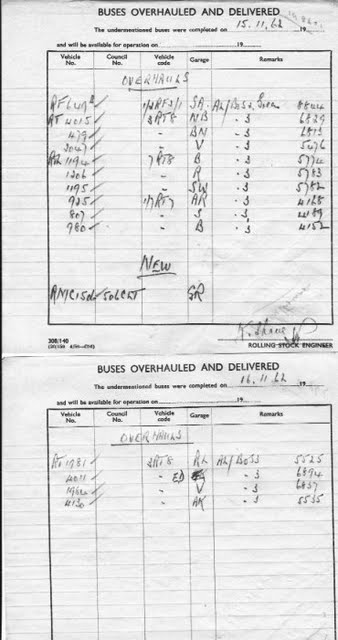 BUSES OVERHAULED AND DELIVERED
The undermentioned buses were completed on 15.11.62 19
and will be available for operation on 19
Vehicle No. Council No. Vehicle code Garage Remarks
OVERHAULS
RF 649 1/2RF2/1 SA. AL/BOSS 8844
RT 4015 3RT8 NB - 3 6829
479 - BN - 3 6813
2047 - V - 3 5476
1194 7RT8 B - 3 5774
1206 - R - 3 5783
1195 - SW - 3 5782
925 1/7RT7 AR - 3 4168
807 - S - 3 4189
980 - B - 3 4152
NEW
GR
308/140
ROLLING STOCK ENGINEER
BUSES OVERHAULED AND DELIVERED
The undermentioned buses were completed on 16.11.62 19
and will be available for operation on 19
Vehicle No. Council No. Vehicle code Garage Remarks
OVERHAULS
RT 1781 3RT8 RL AL/BOSS 5525
4011 - ED - 3 6894
1962 - V - 3 6837
4130 - AK - 3 5535